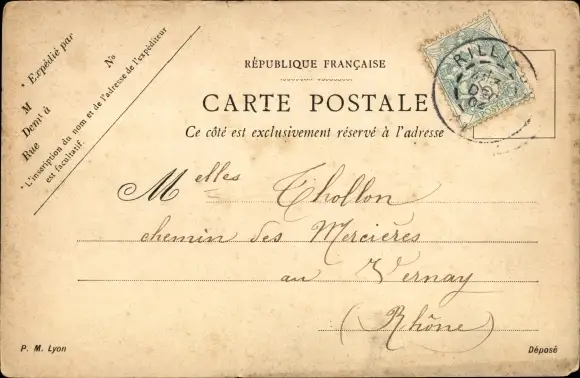 * Expédié par
M
Demt à
Rue
No
* L'inscription du nom et de l'adresse de l'expéditeur
est facultatif.
RÉPUBLIQUE FRANÇAISE
CARTE POSTALE
Ce côté est exclusivement réservé à l'adresse
RILL
Melles Thollon
chemin des Mercières
au Vernay
(Rhône)
P. M. Lyon
Déposé